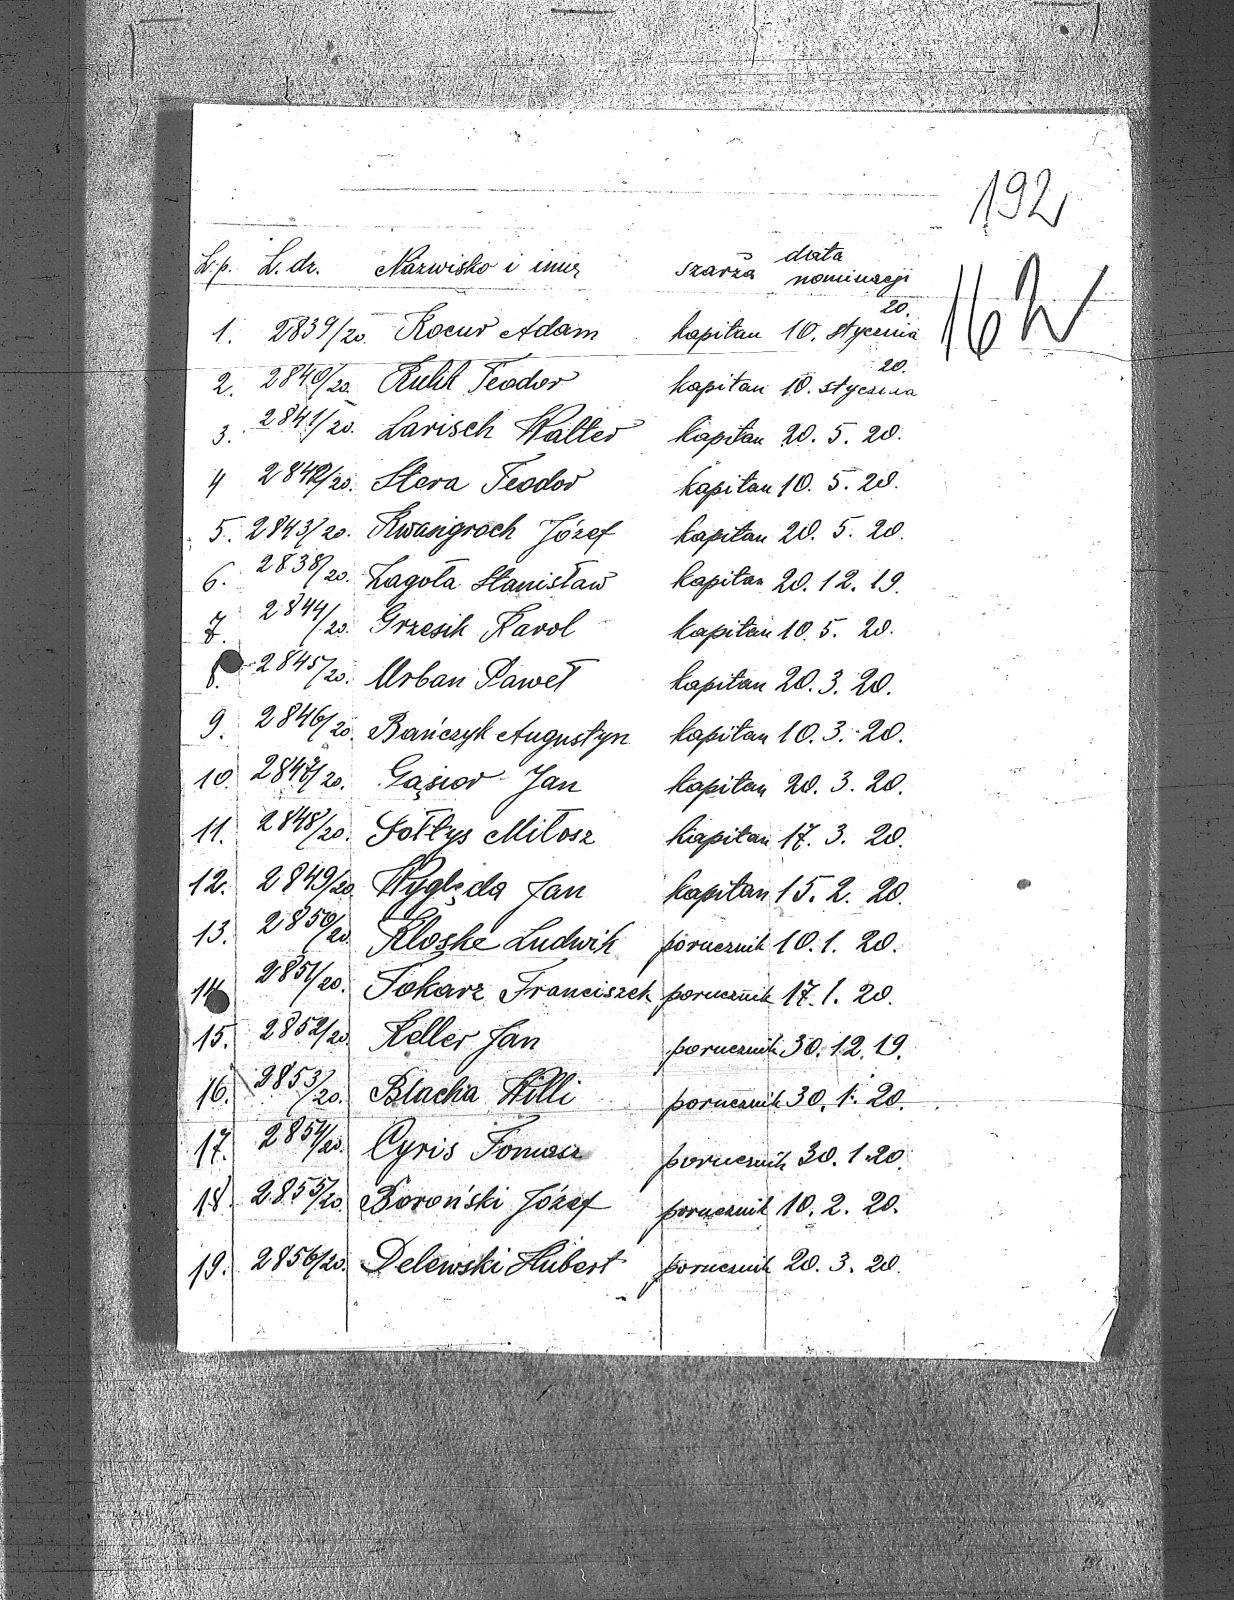 192
162
L.p. L.dz. Nazwisko i imię szarża data nominacji
1. 2839/20. Kocur Adam kapitan 10. stycznia 20.
2. 2840/20. Kulik Teodor kapitan 10. stycznia 20.
3. 2841/20. Larisch Walter kapitan 20. 5. 20.
4 2842/20. Stera Teodor kapitan 10. 5. 20.
5. 2843/20. Kwasigroch Józef kapitan 20. 5. 20.
6. 2838/20. Lagoła Stanisław kapitan 20. 12. 19.
7. 2844/20. Grzesik Karol kapitan 10. 5. 20.
8. 2845/20. Urban Paweł kapitan 20. 3. 20.
9. 2846/20. Bańczyk Augustyn kapitan 10. 3. 20.
10. 2847/20. Gąsior Jan kapitan 20. 3. 20.
11. 2848/20. Sołtys Miłosz kapitan 17. 3. 20.
12. 2849/20. Wyględa Jan kapitan 15. 2. 20.
13. 2850/20. Kloske Ludwik porucznik 10. 1. 20.
14. 2851/20. Tokarz Franciszek porucznik 17. 1. 20.
15. 2852/20. Keller Jan porucznik 30. 12. 19.
16. 2853/20. Blacha Willi porucznik 30. 1. 20.
17. 2854/20. Cyris Tomasz porucznik 30. 1. 20.
18. 2855/20. Boroński Józef porucznik 10. 2. 20.
19. 2856/20. Delewski Hubert porucznik 20. 3. 20.